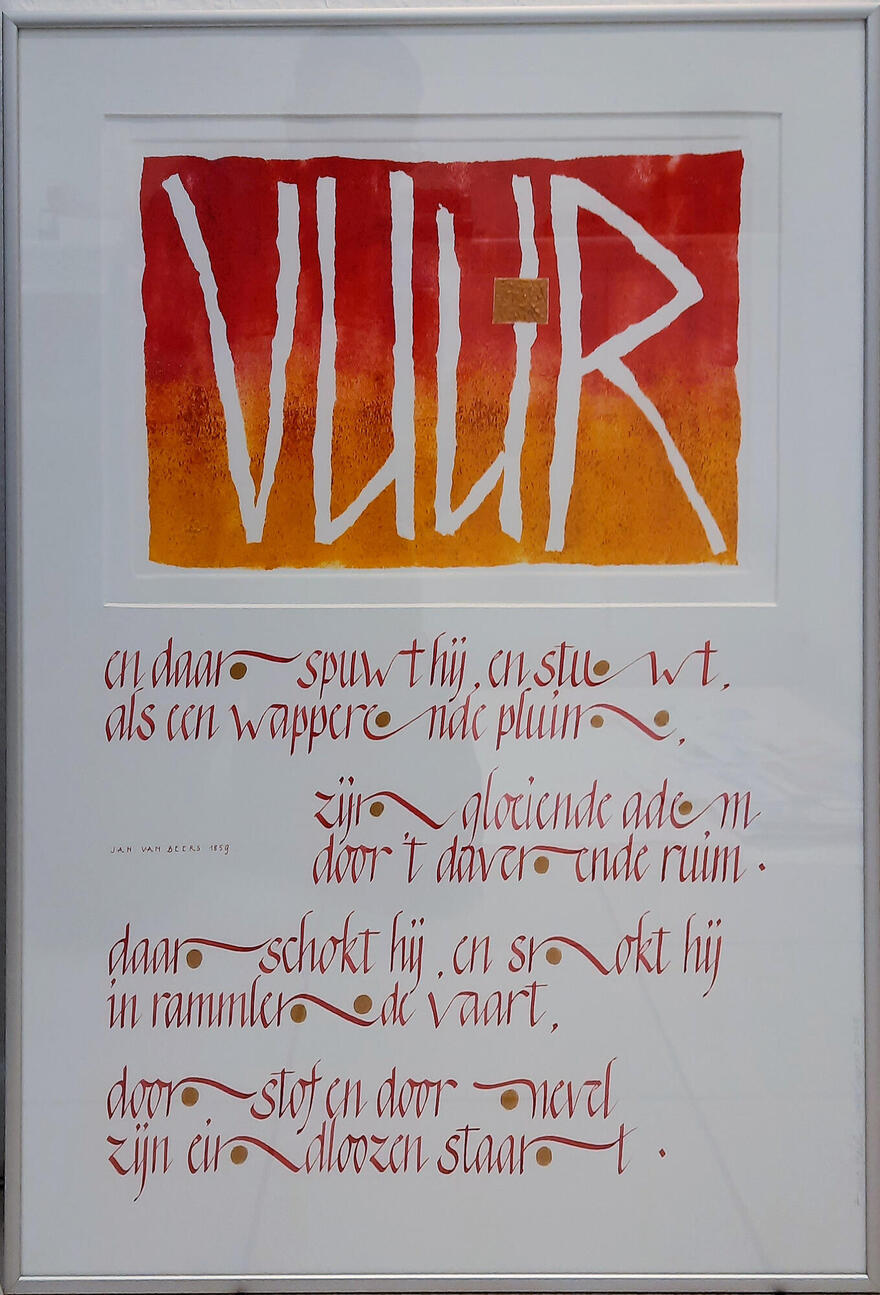 VUUR
en daar spuwt hij, en stuwt,
als een wapperende pluim,
zijn gloeiende adem
door 't daverende ruim.
JAN VAN BEERS 1859
daar schokt hij, en snokt hij
in rammlende vaart,
door stof en door nevel
zijn eindloozen staart.